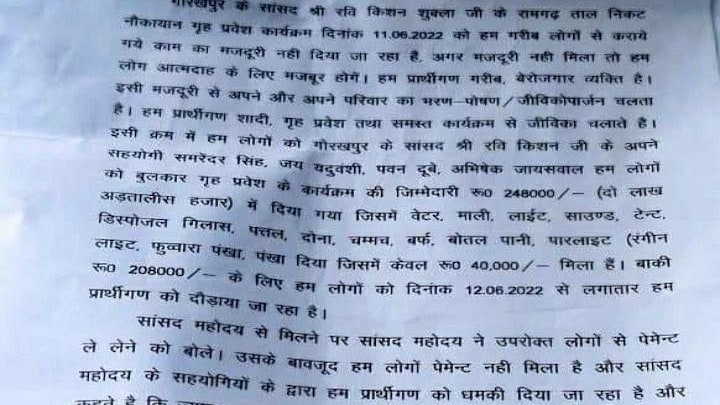 गोरखपुर के सांसद श्री रवि किशन शुक्ला जी के रामगढ़ ताल निकट
नौकायान गृह प्रवेश कार्यक्रम दिनांक 11.06.2022 को हम गरीब लोगों से कराये
गये काम का मजदूरी नही दिया जा रहा है, अगर मजदूरी नही मिला तो हम
लोग आत्मदाह के लिए मजबूर होगें। हम प्रार्थीगण गरीब, बेरोजगार व्यक्ति है।
इसी मजदूरी से अपने और अपने परिवार का भरण–पोषण/जीविकोपार्जन चलता
है। हम प्रार्थीगण शादी, गृह प्रवेश तथा समस्त कार्यक्रम से जीविका चलाते है।
इसी क्रम में हम लोगों को गोरखपुर के सांसद श्री रवि किशन जी के अपने
सहयोगी समरेदर सिंह, जय यदुवंशी, पवन दूबे, अभिषेक जायसवाल हम लोगों
को बुलकार गृह प्रवेश के कार्यक्रम की जिम्मेदारी रू0 248000/– (दो लाख
अड़तालीस हजार) में दिया गया जिसमें वेटर, माली, लाईट, साउण्ड, टेन्ट,
डिस्पोजल गिलास, पत्तल, दोना, चम्मच, बर्फ, बोतल पानी, पारलाइट (रंगीन
लाइट, फुव्वारा पंखा, पंखा दिया जिसमें केवल रू0 40,000/– मिला हैं। बाकी
रू0 208000/– के लिए हम लोगों को दिनांक 12.06.2022 से लगातार हम
प्रार्थीगण को दौड़ाया जा रहा है।
सांसद महोदय से मिलने पर सांसद महोदय ने उपरोक्त लोगों से पेमेन्ट
ले लेने को बोले। उसके बावजूद हम लोगों पेमेन्ट नही मिला है और सांसद
महोदय के सहयोगियों के द्वारा हम प्रार्थीगण को धमकी दिया जा रहा है और
कहते है कि